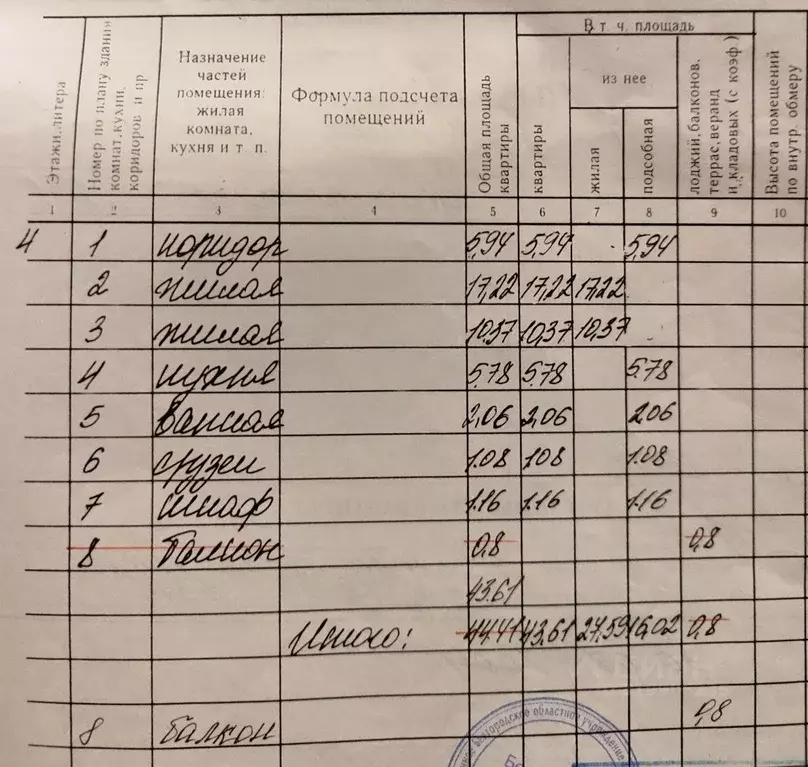 Этажи, литера
Номер по плану здания комнат, кухни, коридоров и пр
Назначение частей помещения: жилая комната, кухня и т. п.
Формула подсчета помещений
Общая площадь квартиры
В т. ч. площадь
квартиры
из нее
жилая
подсобная
лоджий, балконов, террас, веранд и кладовых (с коэф.)
Высота помещений по внутр. обмеру
1 2 3 4 5 6 7 8 9 10
4 1 коридор 5,94 5,94 5,94
2 жилая 17,22 17,22 17,22
3 жилая 10,37 10,37 10,37
4 кухня 5,78 5,78 5.78
5 ванная 2,06 2,06 2.06
6 с/узел 1.08 1.08 1.08
7 шкаф 1.16 1.16 1.16
8 балкон 0,8 0,8
43.61
Итого: 44,41 43,61 27,59 16,02 0,8
8 балкон 0,8
Белгородское областное учреждение